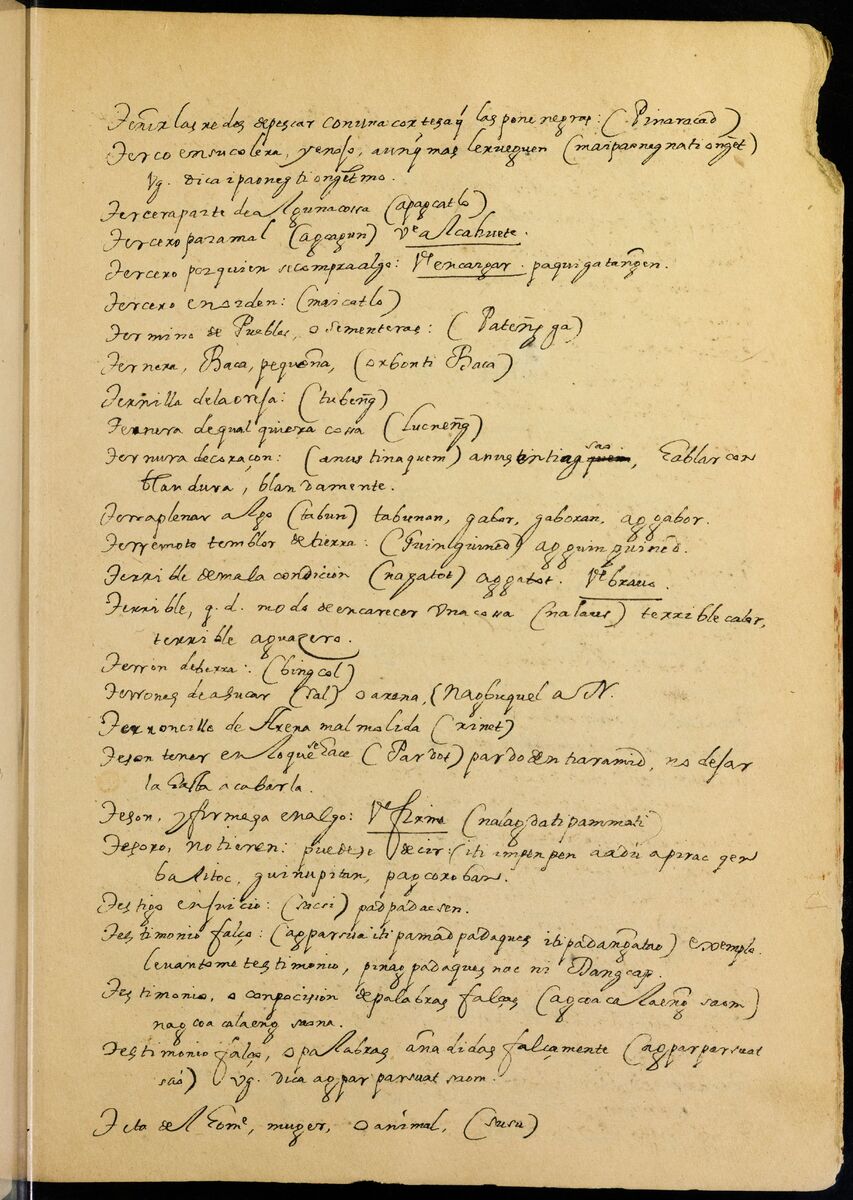 Teñir las redes de pescar con una corteza q̃ las pone negras: (Pinaracad)
Terco en su colera, y enojo, aunq̃ mas le rueguen (maipaonegnationg̃et)
Vg. dica ipaonegtiong̃etmo.
Tercera parte de alguna cossa (apagcatlo)
Tercero para mal (agaagun) Vᵉ alcahuete.
Tercero por quien se compra algo: Vᵉ encargar. paquigatang̃en.
Tercero en orden: (maicatlo)
Termino de Pueblos, o sementeras: (Pateng̃ga)
Ternera, Baca, pequeña, (orbonti Baca)
Ternilla de la oreja: (tubeng̃)
Ternura de qualquiera cossa (lucneng̃)
Ternura de coraçon: (anustinaquem) anustentiag quem sao, hablar con
blandura, blandamente.
Terraplenar algo (tabun) tabunan, gabor, gaboran, aggabor.
Terremoto temblor de tierra: (Guinguined) agguinguined.
Terrible de mala condicion (nagatot) aggatot. Vᵉ bravo.
Terrible, q. d. modo de encarecer una cossa (nalaues) terrible calor,
terrible aguazero.
Terron de tierra: (bingcol)
Terrones de asucar (sal) o arena, (Nagbuquel a N.
Terroncillo de Arena mal molida (rinet)
Teson tener en lo que se hace (Pardot) pardoten tiaramid, no dejar
la hasta acabarla.
Teson, y firmeza en algo: Vᵉ firme (nalagdatipammati)
Tesoro, no tienen: puedese decir: (iti impenpen a adu a pirac qen
balitoc, guinupitan, pagcoroban.
Testigo en juicio: (sacsi) padpadacsen.
Testimonio falço: (agparsua iti pamadpadaques iti padang̃atao) exemplo.
levantome testimonio, pinagpadaques nac ni Dangcap.
Testimonio, o conpocision de palabras falças (agcoacalaeng̃ saom)
nagcoacalaeng saona.
Testimonio falço, o palabras añadidas falçamente (agparparsuat
sao) Vg. dica agparparsuat saom.
Teta del home, muger, o animal, (susu)